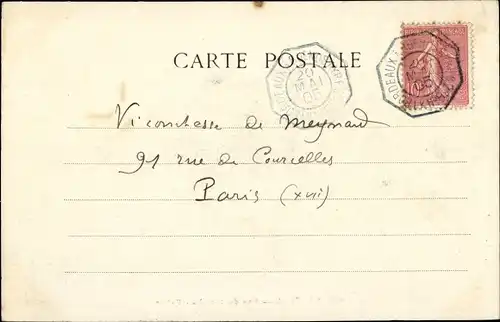 CARTE POSTALE
20
MAI
05
BORDEAUX
20
05
Vicomtesse de Meynard
91 rue de Courcelles
Paris (XVII)